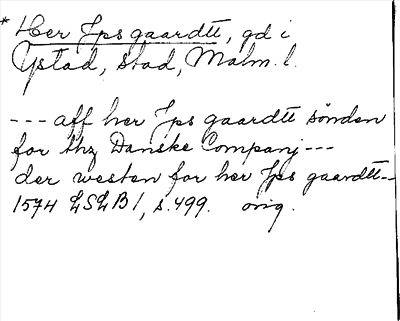 * Her Jps gaardtt, gd i
Ystad, stad, Malm. l.
--- aff her Jps gaardtt sönden
for thz Danske Companj ---
der westen for her Jps gaardtt--
1574 LSLB 1, s. 499. orig.